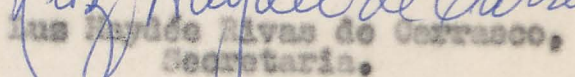 Luz Haydée Rivas de Carrasco,
Secretaria.